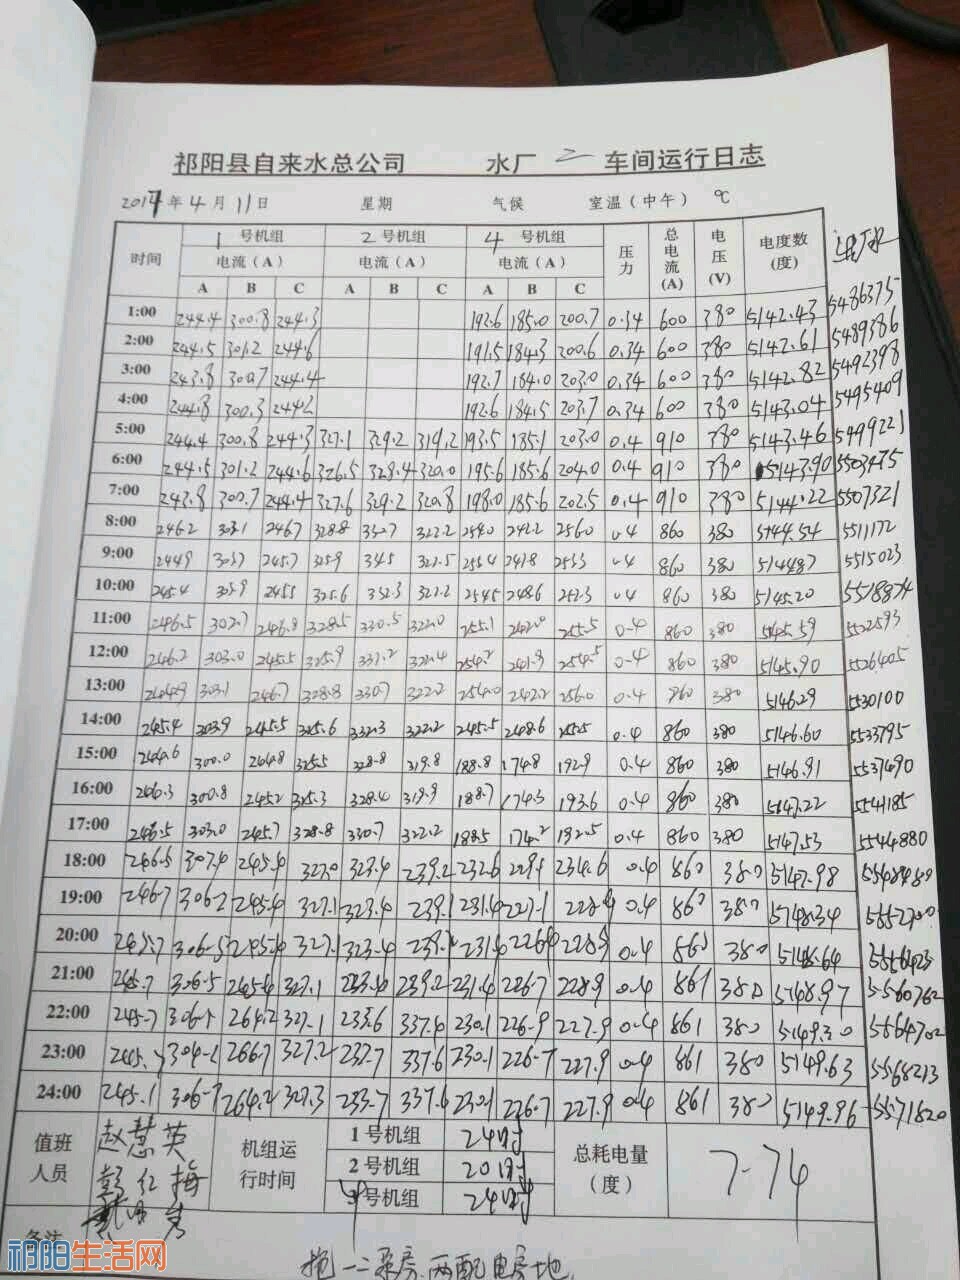 祁阳县自来水总公司 水厂 二 车间运行日志
2017年4月11日 星期 气候 室温(中午) ℃
时间 1号机组 2号机组 4号机组 压力 总电流(A) 电压(V) 电度数(度)
电流(A) 电流(A) 电流(A)
A B C A B C A B C
1:00 244.4 300.8 244.3 192.6 185.0 200.7 0.34 600 380 5142.43 5486375
2:00 244.5 301.2 244.6 191.5 184.3 200.6 0.34 600 380 5142.61 5489386
3:00 243.8 300.7 244.4 192.7 184.0 203.0 0.34 600 380 5142.82 5492398
4:00 244.8 300.3 2442 192.6 184.5 203.7 0.34 600 380 5143.04 5495409
5:00 244.4 300.8 244.3 327.1 329.2 319.2 193.5 185.1 203.0 0.4 910 380 5143.46 5499221
6:00 244.5 301.2 244.6 326.5 328.4 320.0 195.6 185.6 204.0 0.4 910 380 5143.90 5503475
7:00 243.8 300.7 244.4 327.6 329.2 320.8 198.0 185.6 202.5 0.4 910 380 5144.22 5507321
8:00 246.2 303.1 246.7 328.8 330.7 322.2 254.0 242.2 256.0 0.4 860 380 5144.54 5511172
9:00 2449 3037 245.7 325.9 345 322.5 255.4 241.8 2533 0.4 860 380 514487 5515023
10:00 245.4 303.9 2455 325.6 332.3 322.2 254.5 248.6 252.3 0.4 860 380 5145.20 5518874
11:00 246.5 302.7 246.8 328.5 330.5 322.0 255.1 242.0 255.5 0.4 860 380 5145.59 5522593
12:00 246.2 303.0 245.5 325.9 331.2 322.4 254.2 241.9 254.5 0.4 860 380 5145.90 5526405
13:00 244.9 303.1 246.7 328.8 330.7 322.2 254.0 242.2 256.0 0.4 860 380 5146.29 5530100
14:00 245.4 303.9 245.5 325.6 332.3 322.2 245.5 248.6 252.5 0.4 860 380 5146.60 5533795
15:00 244.6 300.0 244.8 325.5 328.8 319.8 188.8 174.8 192.9 0.4 860 380 5146.91 5537490
16:00 246.3 300.8 2452 325.3 328.4 319.9 188.7 174.3 193.6 0.4 860 380 5147.22 5541185
17:00 246.5 303.0 245.7 328.8 330.7 322.2 188.5 174.2 192.5 0.4 860 380 5147.53 5544880
18:00 246.5 307.4 245.4 327.0 323.4 239.2 232.6 229.1 234.6 0.4 860 380 5147.98 5548489
19:00 246.7 306.2 245.4 327.1 323.4 239.1 231.4 227.1 228.9 0.4 860 380 5148.34 5552700
20:00 245.7 306.5 245.4 327.1 323.4 239.2 231.4 226.4 228.9 0.4 860 380 5148.64 5556423
21:00 245.7 306.5 245.4 327.1 233.4 239.2 231.4 226.7 228.9 0.4 861 380 5148.97 5560762
22:00 245.7 306.5 264.2 327.1 233.6 337.4 230.1 226.9 227.9 0.4 861 380 5149.30 5564702
23:00 245.7 304.2 266.7 327.2 237.7 337.6 230.1 226.7 227.9 0.4 861 380 5149.63 5568213
24:00 245.1 306.7 264.2 327.3 233.7 337.6 230.1 226.7 227.9 0.4 861 380 5149.96 5571820
值班人员 赵慧英 彭红梅 机组运行时间 1号机组 24时 总耗电量(度) 7.74
2号机组 20时
4号机组 24时
备注 拖一二泵房、两配电房地
祁阳生活网